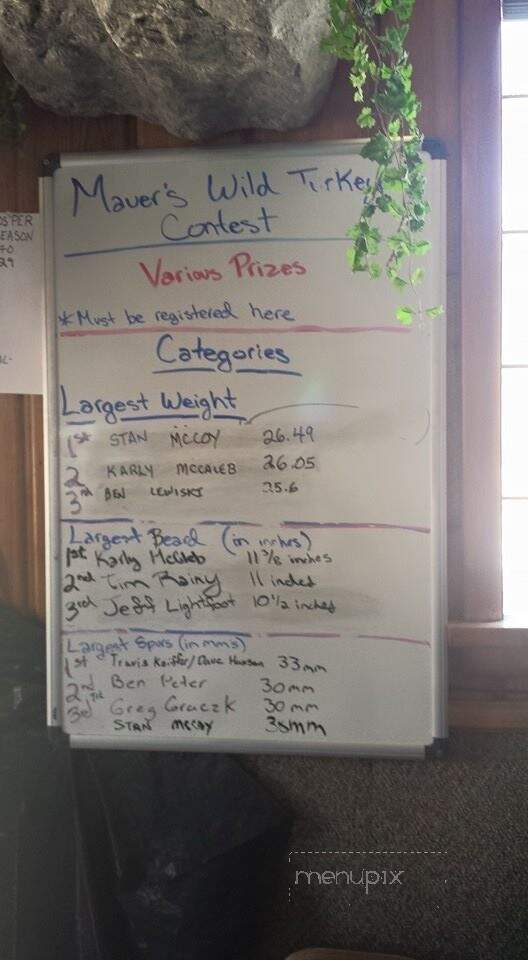 OS PER
EASON
40
29
Maver's Wild Turkey
Contest
Various Prizes
*Must be registered here
Categories
Largest Weight
1st STAN MCCOY 26.49
2 KARLY MCCALEB 26.05
3rd BEN LEWISKI 25.6
Largest Beard (in inches)
1st Karly McCaleb 11 3/8 inches
2nd Tim Rainy 11 inches
3rd Jeff Lightfoot 10 1/2 inches
Largest Spurs (in mm's)
1st Travis Keiffer/Dave Hanson 33mm
2nd Ben Peter 30mm
3rd Greg Graczk 30mm
STAN MCCOY
menupix